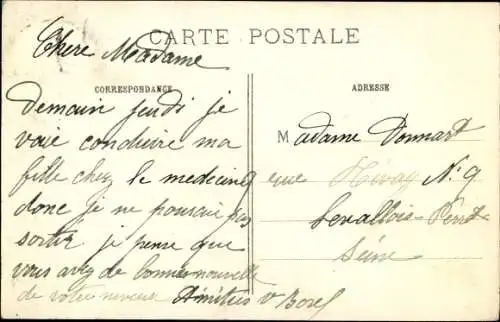 CARTE POSTALE
Chere Madame
CORRESPONDANCE
ADRESSE
Demain jeudi je
vais conduire ma
fille chez le medecin
donc je ne pourrai pas
sortir je pense que
vous avez de bonnes nouvelle
de votre neveux Amitiés V Borel
Madame Donnart
rue N° 9
Levallois-Perret
Seine